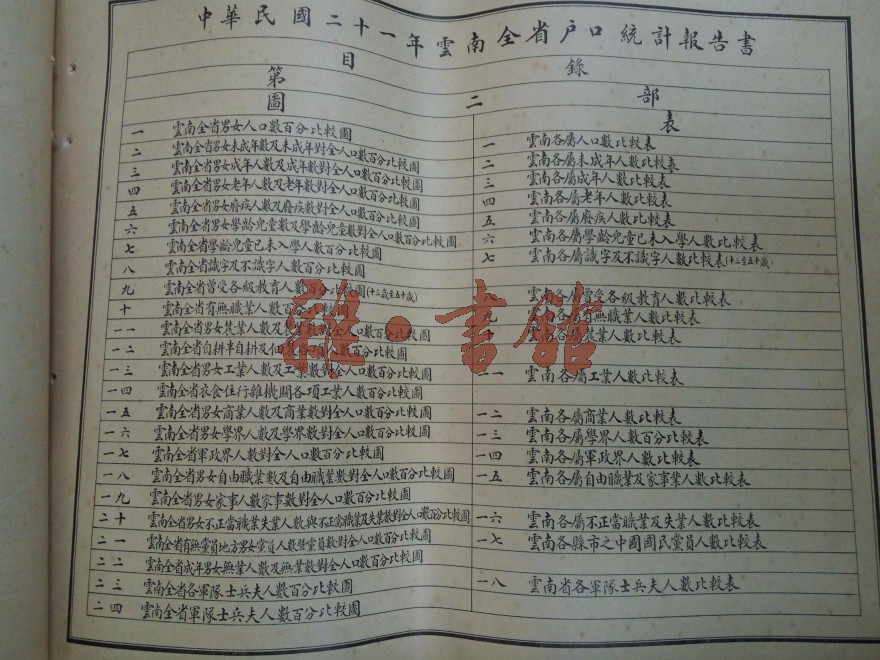 中華民國二十一年雲南全省户口統計報告書
目錄
第二部
圖
一 雲南全省男女人口數百分比較圖
二 雲南全省男女未成年數及未成年對全人口數百分比較圖
三 雲南全省男女成年人數及成年數對全人口數百分比較圖
四 雲南全省男女老年人數及老年數對全人口數百分比較圖
五 雲南全省男女廢疾人數及廢疾數對全人口數百分比較圖
六 雲南全省男女學齡兒童數及學齡兒童數對全人口數百分比較圖
七 雲南全省學齡兒童已未入學人數百分比較圖
八 雲南全省識字及不識字人數百分比較圖
九 雲南全省曾受各級教育人數百分比較圖(十三歲至五十歲)
十 雲南全省有無職業人數百分比較
一一 雲南全省男女農業人數及 數對全人口數百分比較圖
一二 雲南全省自耕半自耕及佃 各項人數百分比較圖
一三 雲南全省男女工業人數及工業數對全人口數百分比較圖
一四 雲南全省衣食住行雜機關各項工業人數百分比較圖
一五 雲南全省男女商業人數及商業數對全人口數百分比較圖
一六 雲南全省男女學界人數及學界數對全人口數百分比較圖
一七 雲南全省軍政界人數對全人口數百分比較圖
一八 雲南全省男女自由職業數及自由職業數對全人口數百分比較圖
一九 雲南全省男女家事人數家事數對全人口數百分比較圖
二十 雲南全省男女不正當職業失業人數與不正當職業及失業數對全人口數百分比較圖
二一 雲南全省有無黨員地方男女黨員人數暨黨員數對全人口數百分比較圖
二二 雲南全省成年男女無業人數及無業數對全人口數百分比較圖
二三 雲南全省各軍隊士兵夫人數百分比較圖
二四 雲南全省軍隊士兵夫人數百分比較圖
表
一 雲南各屬人口數比較表
二 雲南各屬未成年人數比較表
三 雲南各屬成年人數比較表
四 雲南各屬老年人數比較表
五 雲南各屬廢疾人數比較表
六 雲南各屬學齡兒童已未入學人數比較表
七 雲南各屬識字及不識字人數比較表(十三至五十歲)
雲南各屬曾受各級教育人數比較表
九 雲南各屬有無職業人數比較表
雲南各屬農業人數比較表
一一 雲南各屬工業人數比較表
一二 雲南各屬商業人數比較表
一三 雲南各屬學界人數百分比較表
一四 雲南各屬軍政界人數比較表
一五 雲南各屬自由職業及家事業人數比較表
一六 雲南各屬不正當職業及失業人數比較表
一七 雲南各縣市之中國國民黨員人數比較表
一八 雲南省各軍隊士兵夫人數比較表
雜·書館